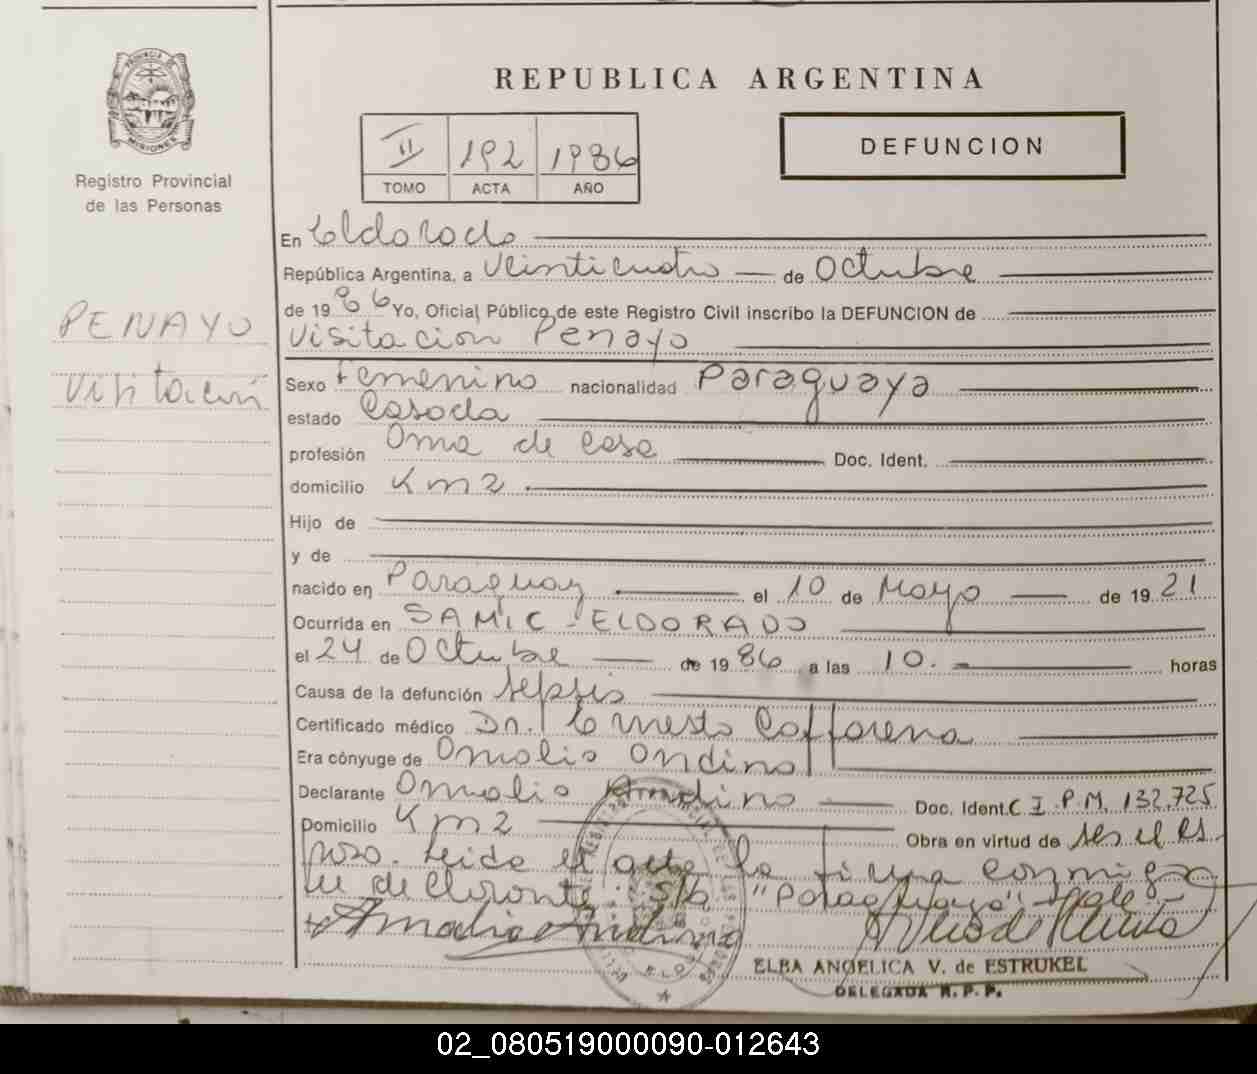 PROVINCIA DE
MISIONES
Registro Provincial
de las Personas
PENAYO
Visitación
REPUBLICA ARGENTINA
II 192 1986
TOMO ACTA AÑO
DEFUNCION
En Eldorado
República Argentina, a Veinticuatro de Octubre
de 1986 Yo, Oficial Público de este Registro Civil inscribo la DEFUNCION de
Visitacion Penayo
Sexo Femenino nacionalidad Paraguaya
estado Casada
profesión Ama de Casa Doc. Ident.
domicilio Km 2
Hijo de
y de
nacido en Paraguay el 10 de Mayo de 1921
Ocurrida en SAMIC - ELDORADO
el 24 de Octubre de 1986 a las 10. horas
Causa de la defunción sepsis
Certificado médico Dr. Ernesto Caffarena
Era cónyuge de Amalio Andino
Declarante Amalio Andino Doc. Ident. C I. P.M. 132.725
Domicilio Km 2 Obra en virtud de ser el es
poso. Leida el acta la firma conmigo
el declarante. S/b "Paraguaya" Vale
Amalio Andino
ELBA ANGELICA V. de ESTRUKEL
DELEGADA R. P. P.
02_080519000090-012643